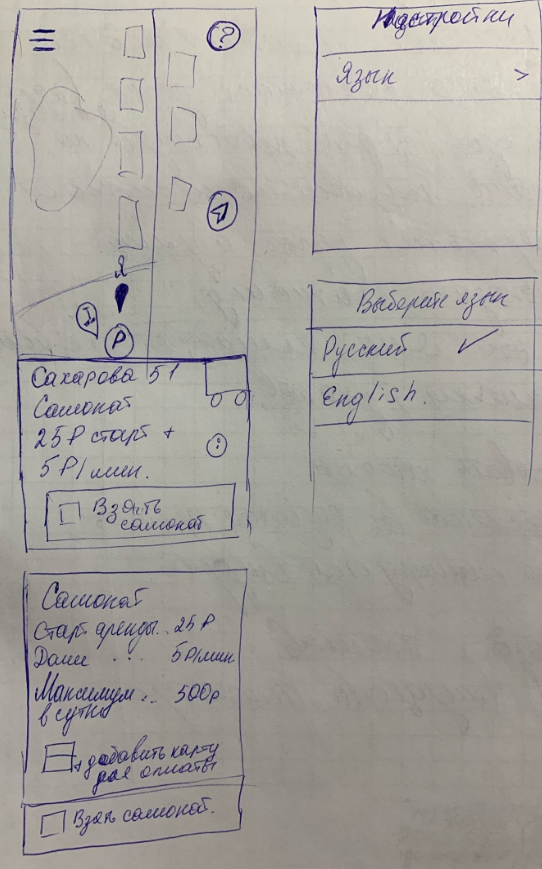 ?
Я
P
Сахарова 51
Самокат
25₽ старт +
5₽/мин.
Взять
самокат
Самокат
Старт аренды.. 25₽
Далее ... 5₽/мин
Максимум .. 500₽
в сутки
+ добавить карту
для оплаты
Взять самокат.
Настройки
Язык >
Выберите язык
Русский ✓
English.